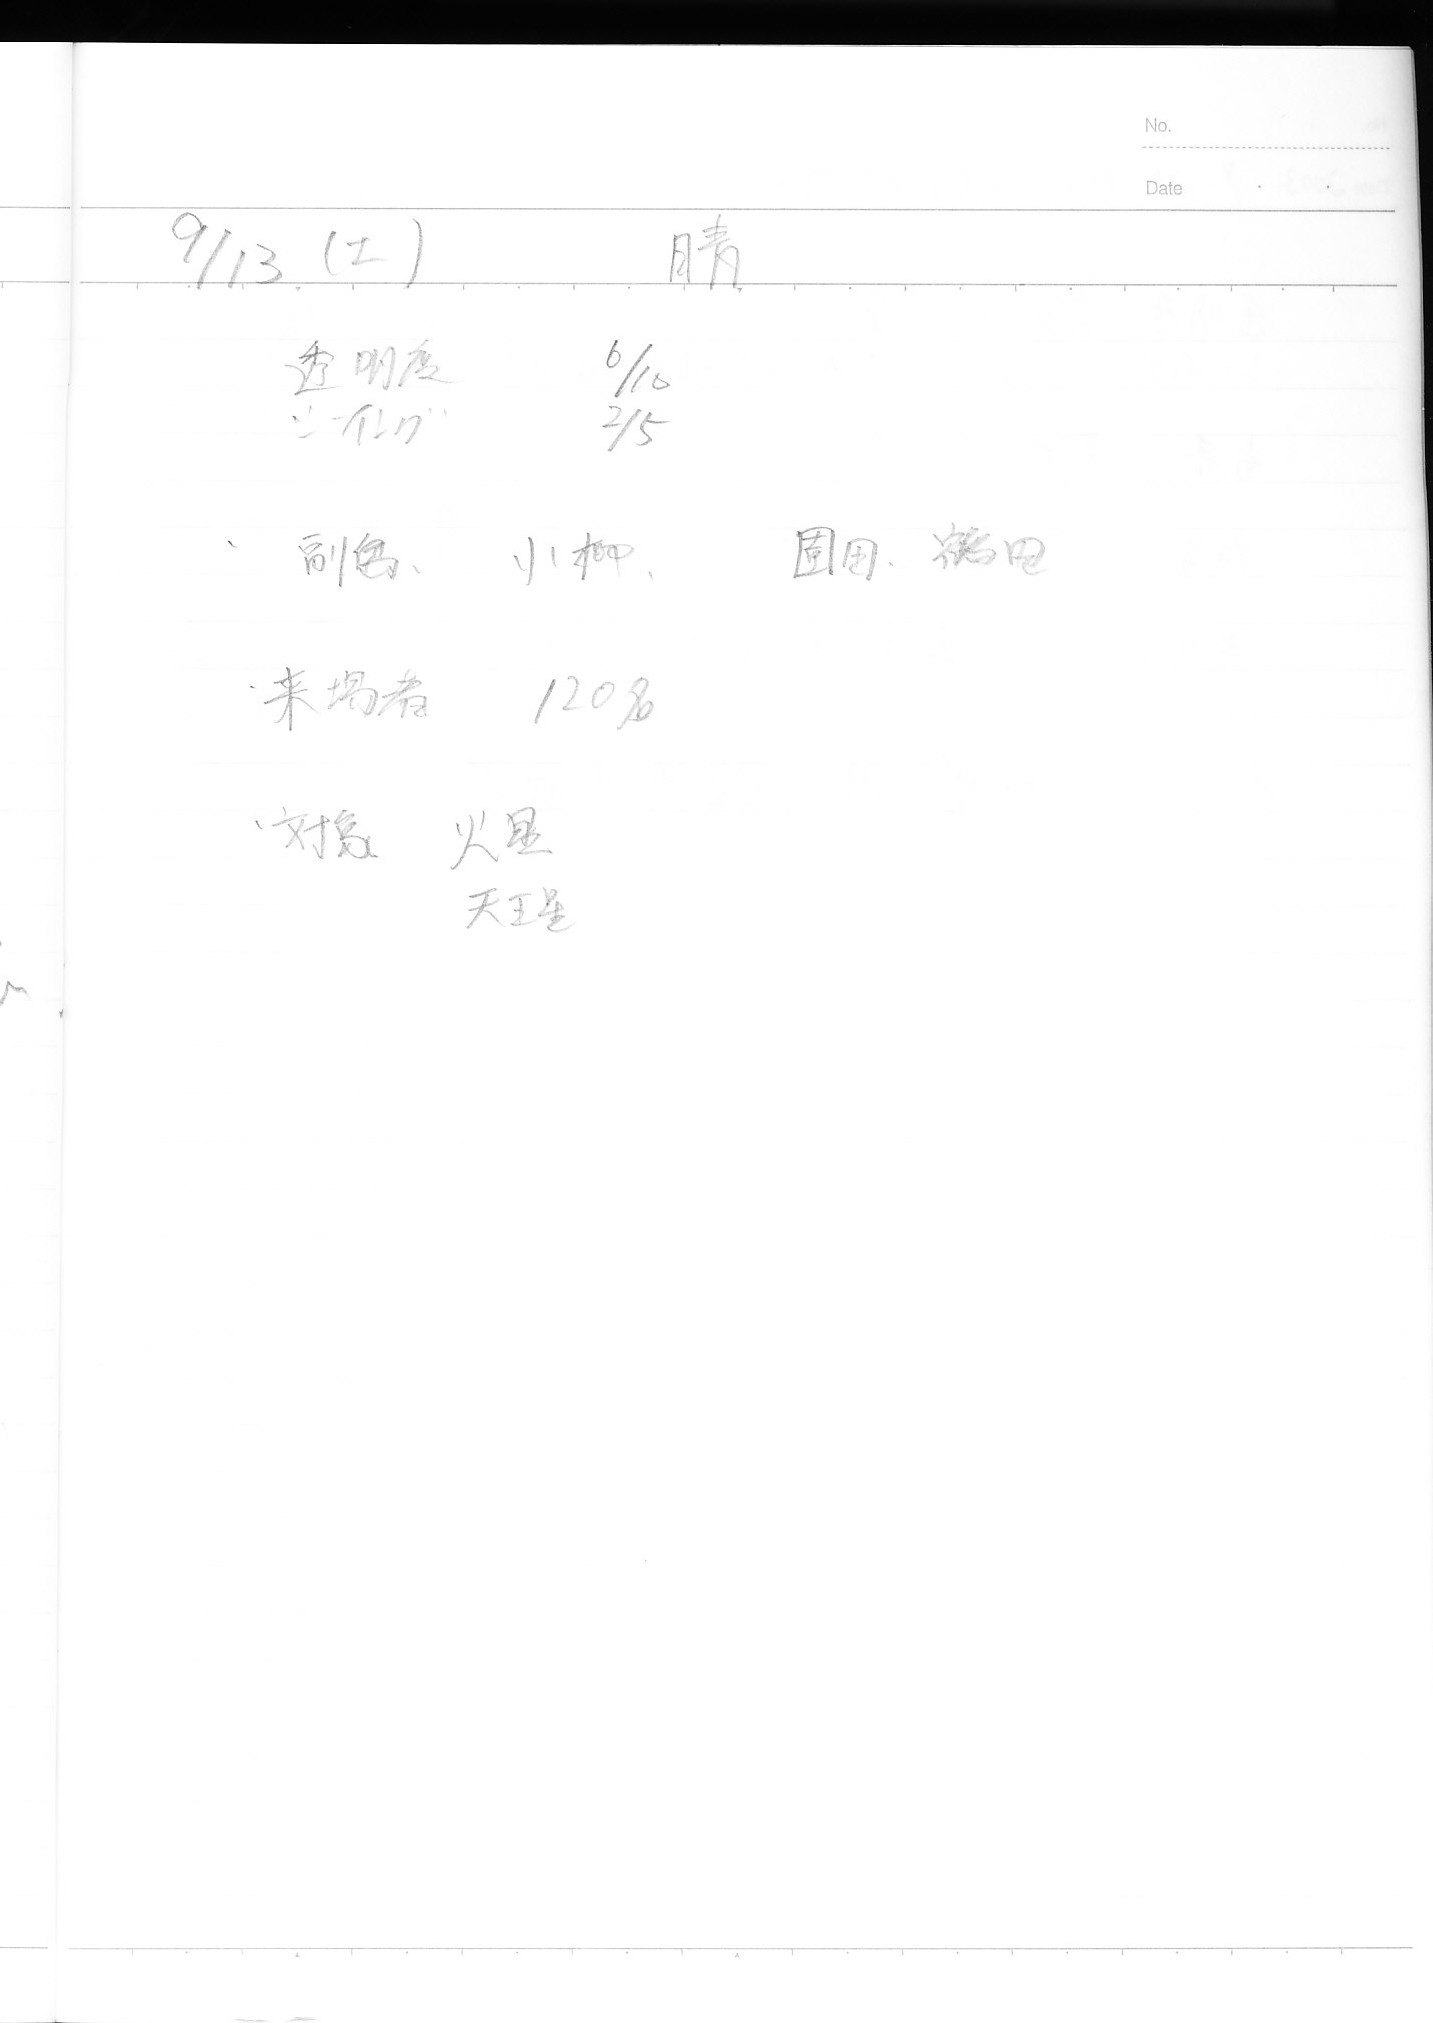 No.
Date
9/13 (土) 晴
透明度 6/10
シーイング 2/5
・副島、小柳、園田、鶴田
・来場者 120名
・対象 火星
天王星